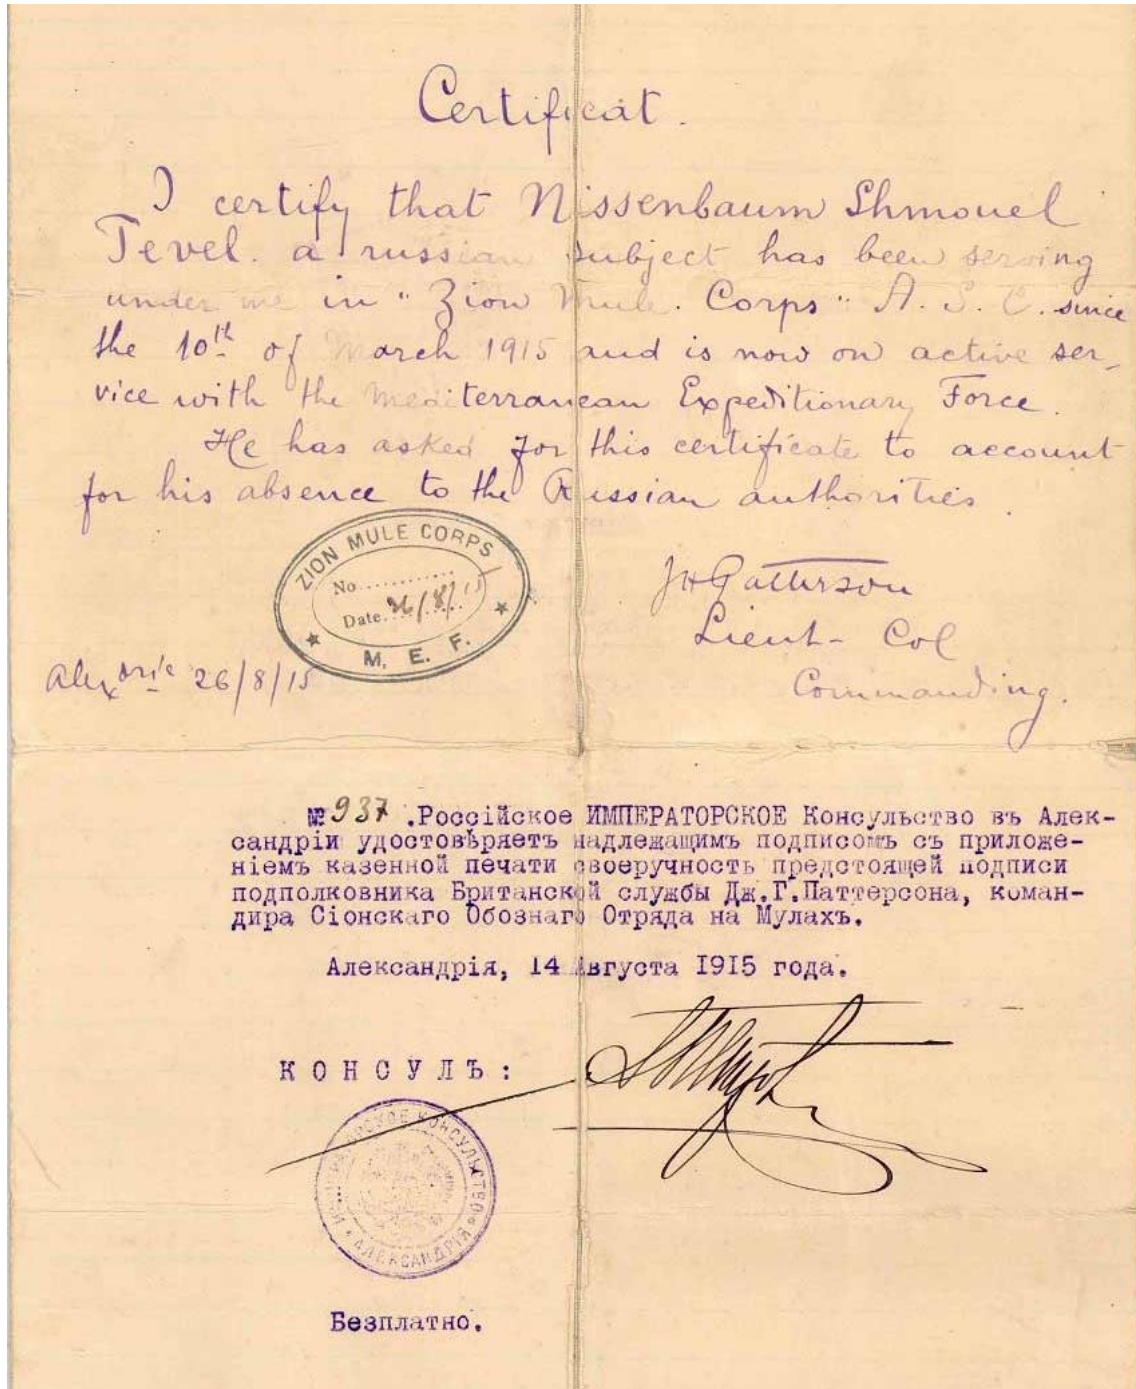 Certificat.
I certify that Nissenbaum Shmouel
Tevel. a russian subject has been serving
under me in "Zion Mule. Corps" A. S. C. since
the 10th of March 1915 and is now on active ser-
vice with the Mediterranean Expeditionary Force.
He has asked for this certificate to account
for his absence to the Russian authorities.
ZION MULE CORPS
No............
Date. 26/8/15
M. E. F.
JHPatterson
Lieut- Col
Commanding.
Alexdrie 26/8/15
№ 937 .Россійское ИМПЕРАТОРСКОЕ Консульство въ Алек-
сандріи удостовѣряетъ надлежащимъ подписомъ съ приложе-
ніемъ казенной печати своеручность предстоящей подписи
подполковника Британской службы Дж.Г.Паттерсона, коман-
дира Сіонскаго Обознаго Отряда на Мулахъ.
Александрія, 14 Августа 1915 года.
КОНСУЛЪ:
КОНСУЛЬСТВО
АЛЕКСАНДРІЯ
Безплатно.